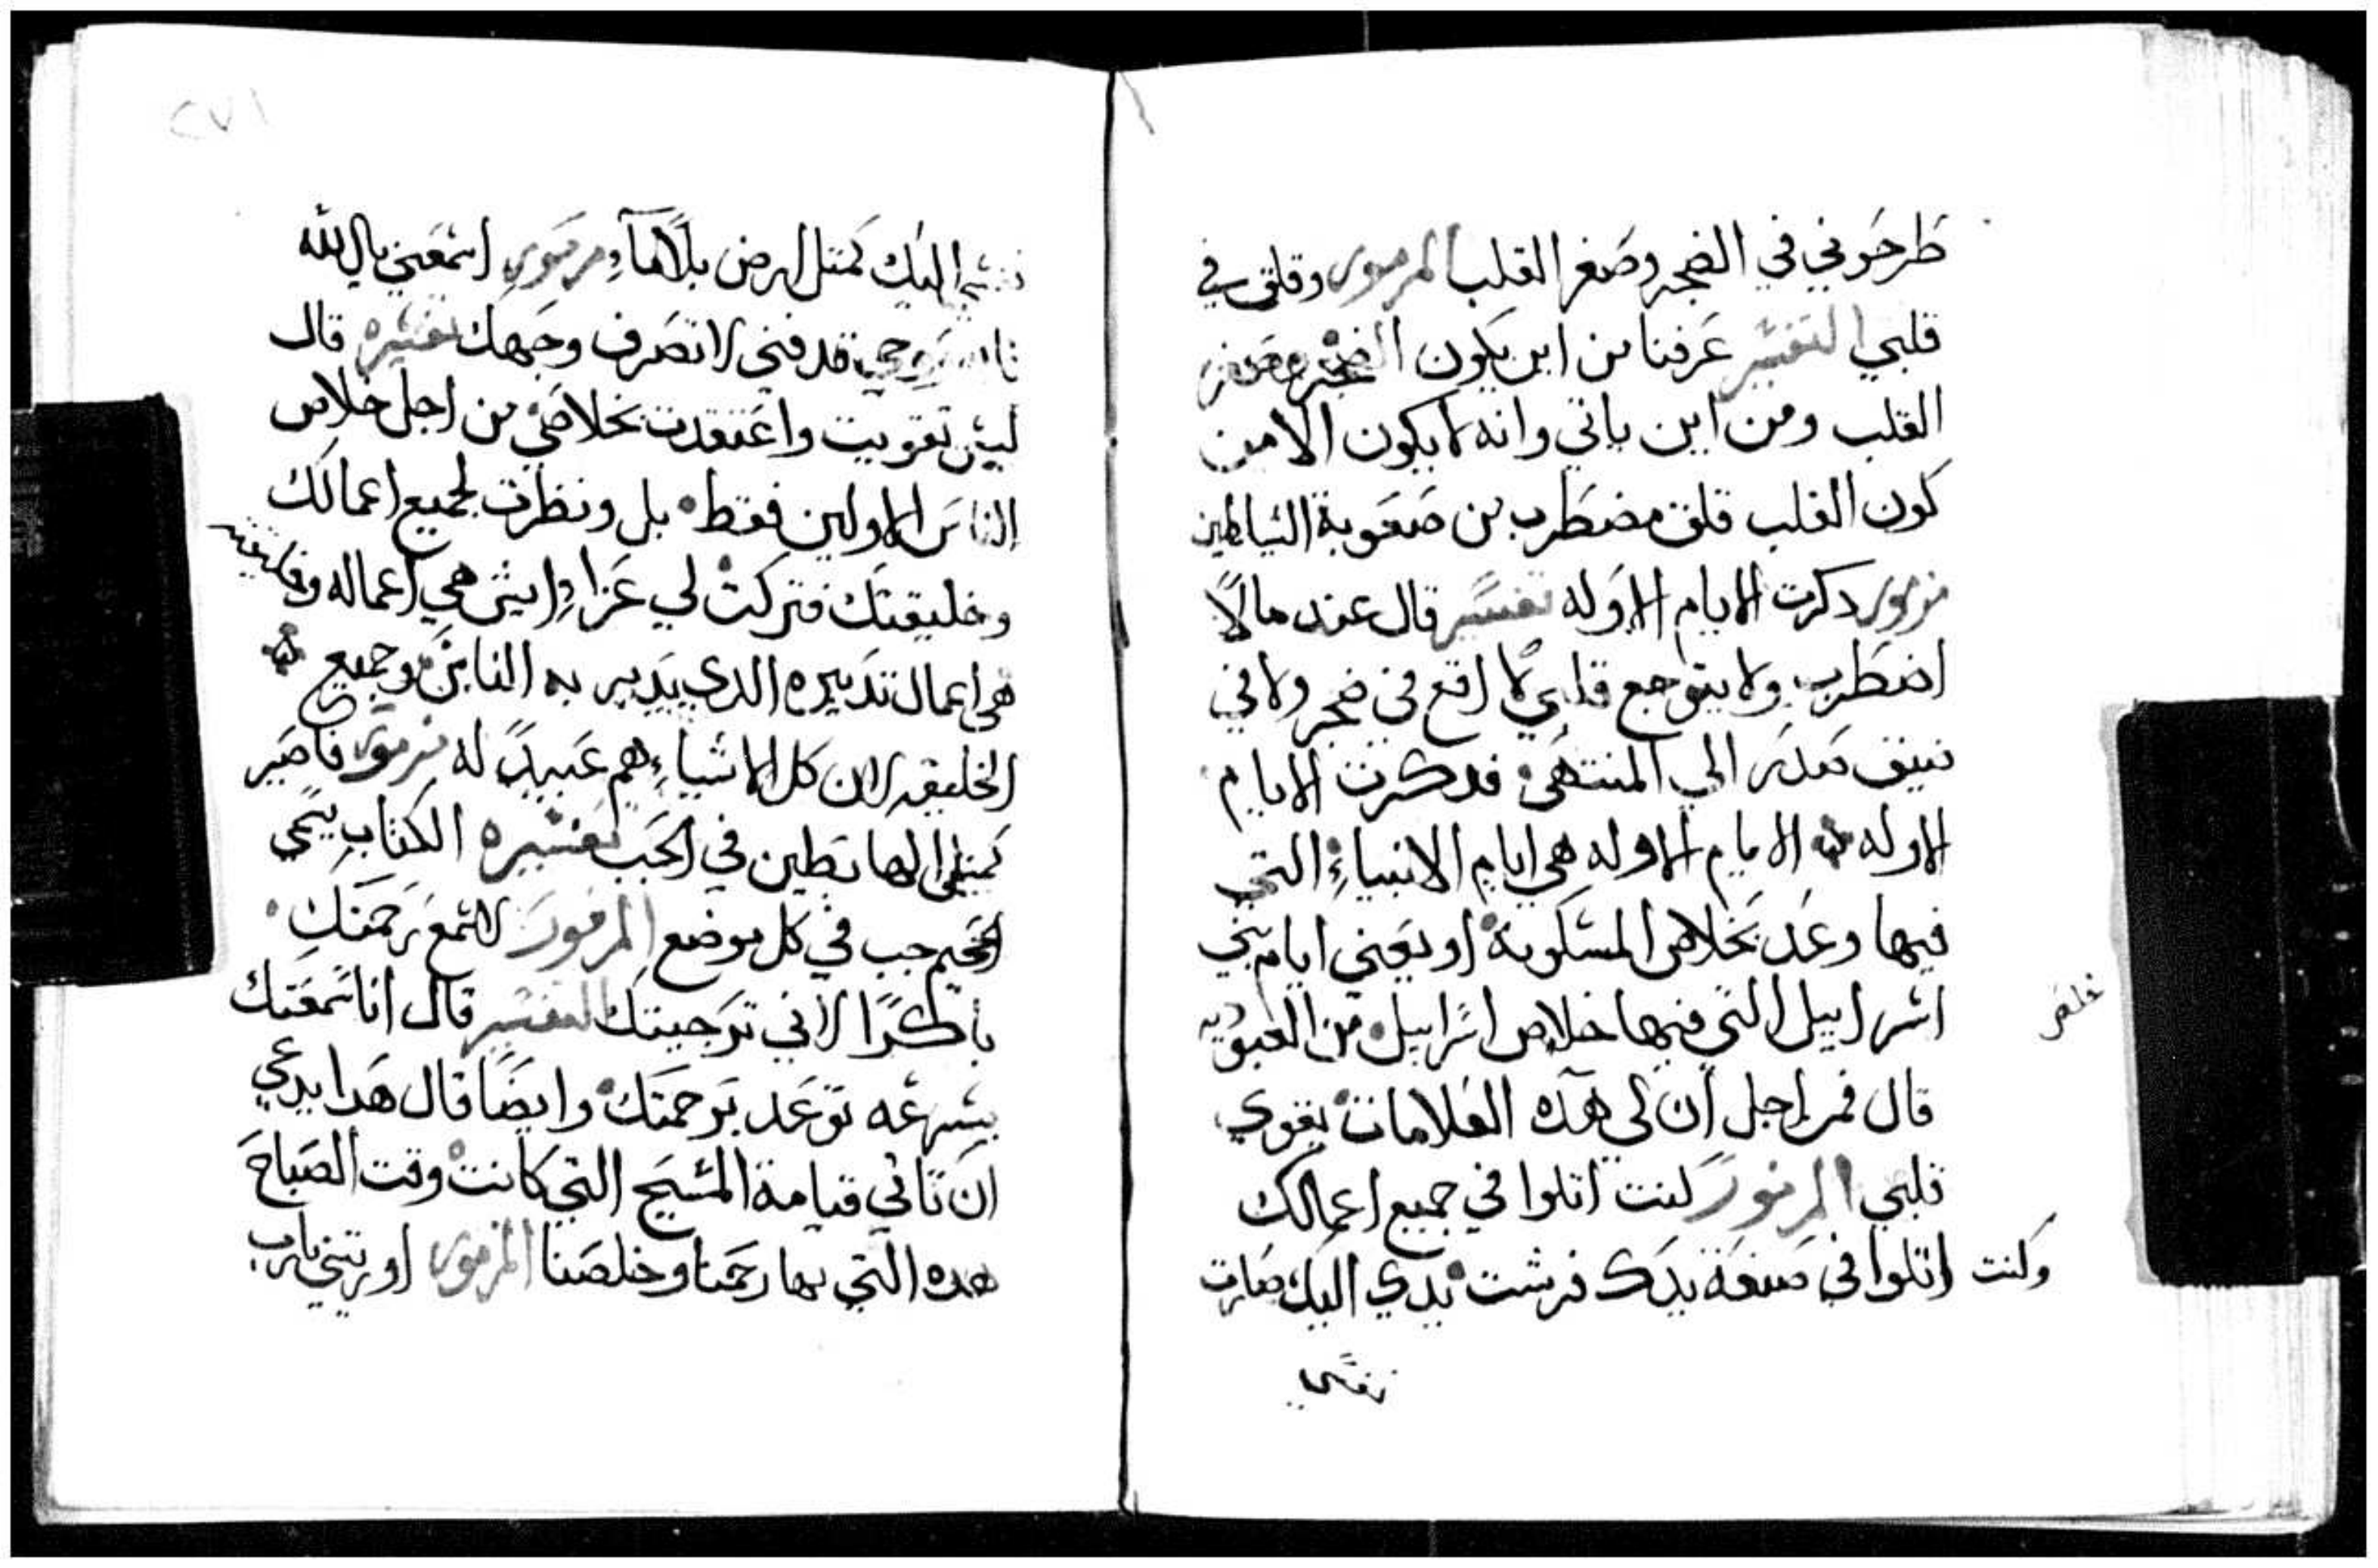 طرحوني في الضجر وصغر القلب المزمور وقلق في
قلبي التفسير عرفنا من اين يكون الضجر وصغر
القلب ومن اين ياتي وانه لا يكون الا من
كون القلب قلق مضطرب من صعوبة الشياطين
مزمور دكرت الايام الاوله تفسير قال عند ما لا
اضطرب ولا يتوجع قلبي لا اقع في ضجر ولا في
الي المنتهى فدكرت الايام
الاوله الايام الاوله هي ايام الانبياء التي
فيها وعد بخلاص المسكونة او يعني ايام بني
اسراييل التي فيها خلاص اسراييل من العبوديه
قال فمن اجل ان لي هده العلامات يقوي
قلبي المزمور كنت اتلوا في جميع اعمالك
وكنت اتلوا في صنعة يدك فرشت يدي اليك صارت
نفسي
٢٧١
نفسي اليك كمتل ارض بلا ماء مزمور اسمعني يا الله
روحي قد فني لا تصرف وجهك تفسيره قال
ليس تقويت واعتقدت بخلاصي من اجل خلاص
الناس الاولين فقط بل ونظرت لجميع اعمالك
وخليقتك فتركت لي عزاء ايش هي اعماله وخليقته
هي اعمال تدبيره الدي يدبر به الناس وجميع
الخليقه لان كل الاشياء هم عبيد له مزمور فاصير
كمتل الهابطين في الجب تفسيره الكتاب يسمي
الجحيم جب في كل موضع المزمور لاسمع رحمتك
باكرا لاني ترجيتك التفسير قال انا سمعتك
بسرعه توعد برحمتك وايضا قال هدا يدعي
ان تاتي قيامة المسيح التي كانت وقت الصباح
هده التي بها رحمنا وخلصنا المزمور اوريني يارب